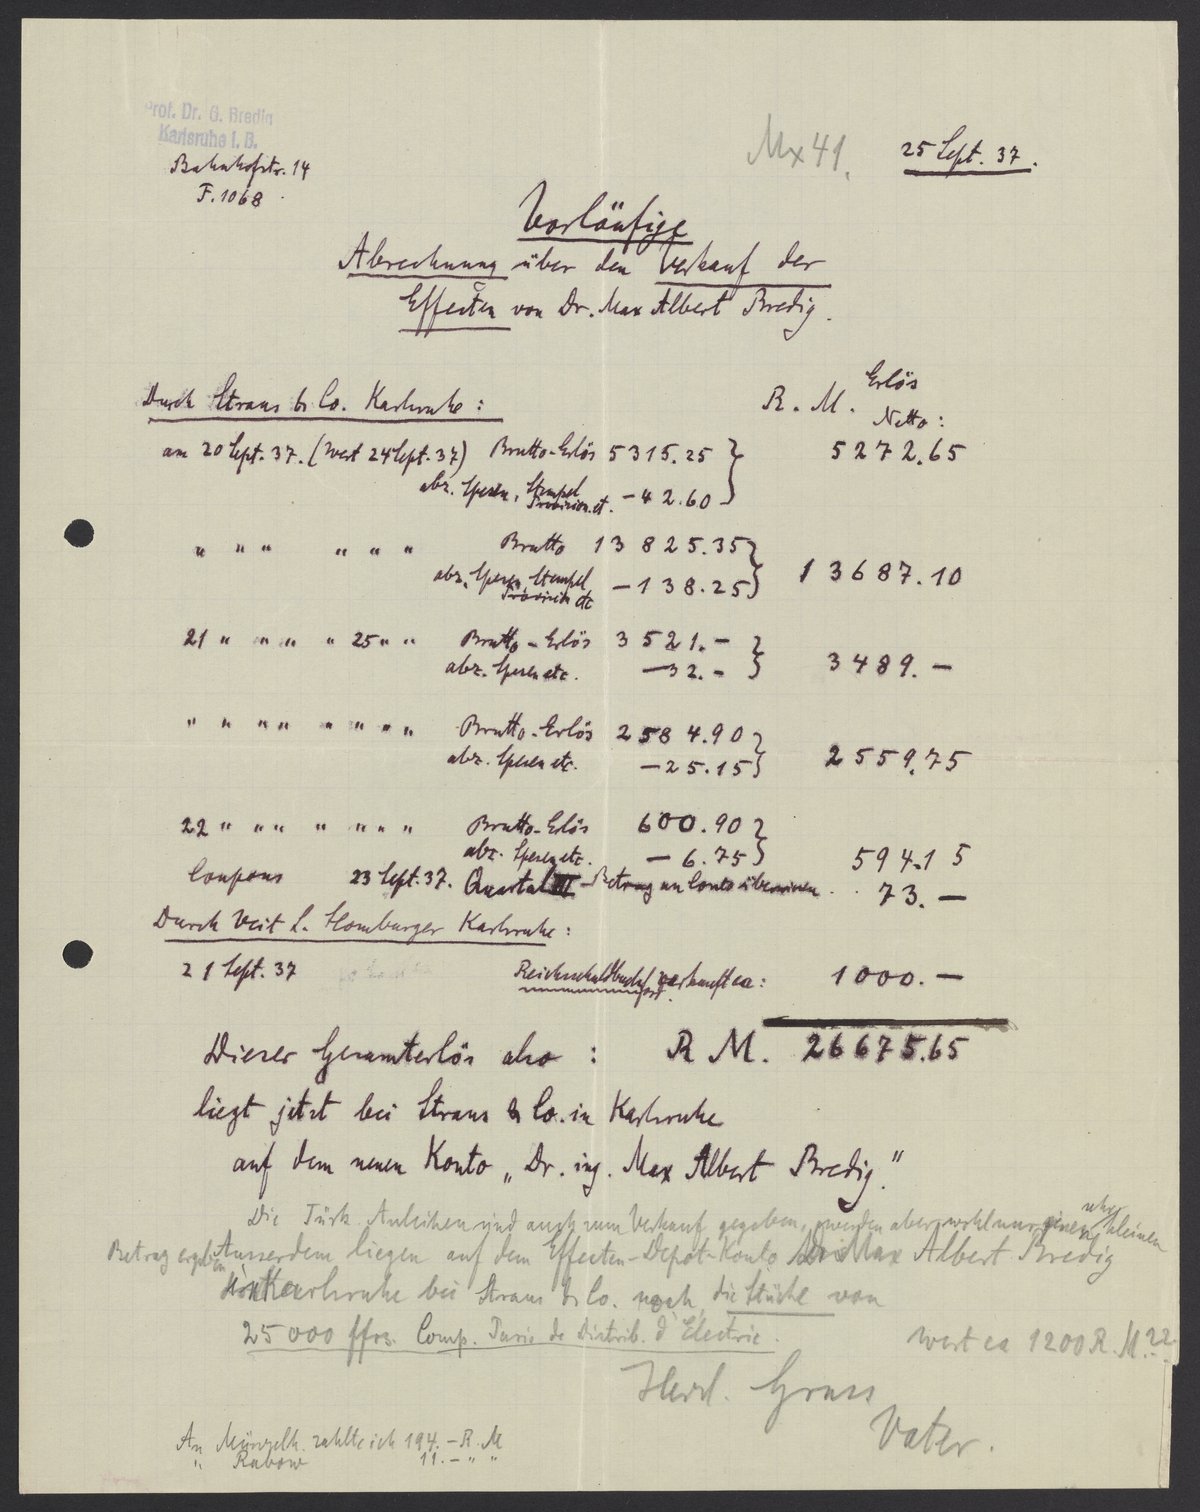 Prof. Dr. G. Bredig
Karlsruhe i. B.
Bahnhofstr. 14
F. 1068
Mx 41.
25 Sept. 37.
Vorläufige
Abrechnung über den Verkauf der
Effecten von Dr. Max Albert Bredig.
Erlös
Durch Straus & Co. Karlsruhe: R. M. Netto:
am 20 Sept. 37. (Wert 24 Sept. 37) Brutto-Erlös 5315.25 } 5272.65
abz. Spesen, Stempel Provision et. -42.60
" " " " " " Brutto 13825.35 } 13687.10
abz. Spesen, Stempel Provision etc -138.25
21 " " " " 25 " " Brutto-Erlös 3521.- } 3489.-
abz. Spesen etc. -32.-
" " " " " " " " Brutto-Erlös 2584.90 } 2559.75
abz. Spesen etc. -25.15
22 " " " " " " " Brutto-Erlös 600.90 } 594.15
abz. Spesen etc. - 6.75
Coupons 23 Sept. 37. Quartal III - Betrag an Conto überwiesen. 73.-
Durch Veit L. Homburger Karlsruhe:
21 Sept. 37 Reichsschuldbuchford. verkauft ca: 1000.-
Dieser Gesamterlös also: R. M. 26675.65
liegt jetzt bei Straus & Co. in Karlsruhe
auf dem neuen Konto „Dr. ing. Max Albert Bredig."
Die Türk. Anleihen sind auch zum Verkauf gegeben, werden aber wohl nur einen sehr kleinen
Betrag ergeben
Ausserdem liegen auf dem Effecten-Depot-Konto Dr Max Albert Bredig
in Karlsruhe bei Straus & Co. noch die Stücke von
25000 ffrs. Comp. Paris de Distrib. d'Electric.
Wert ca 1200 R. M. ??
Herzl. Gruss
Vater.
An Münzelh. zahlte ich 194.- R. M
" Rabow 11.- " "